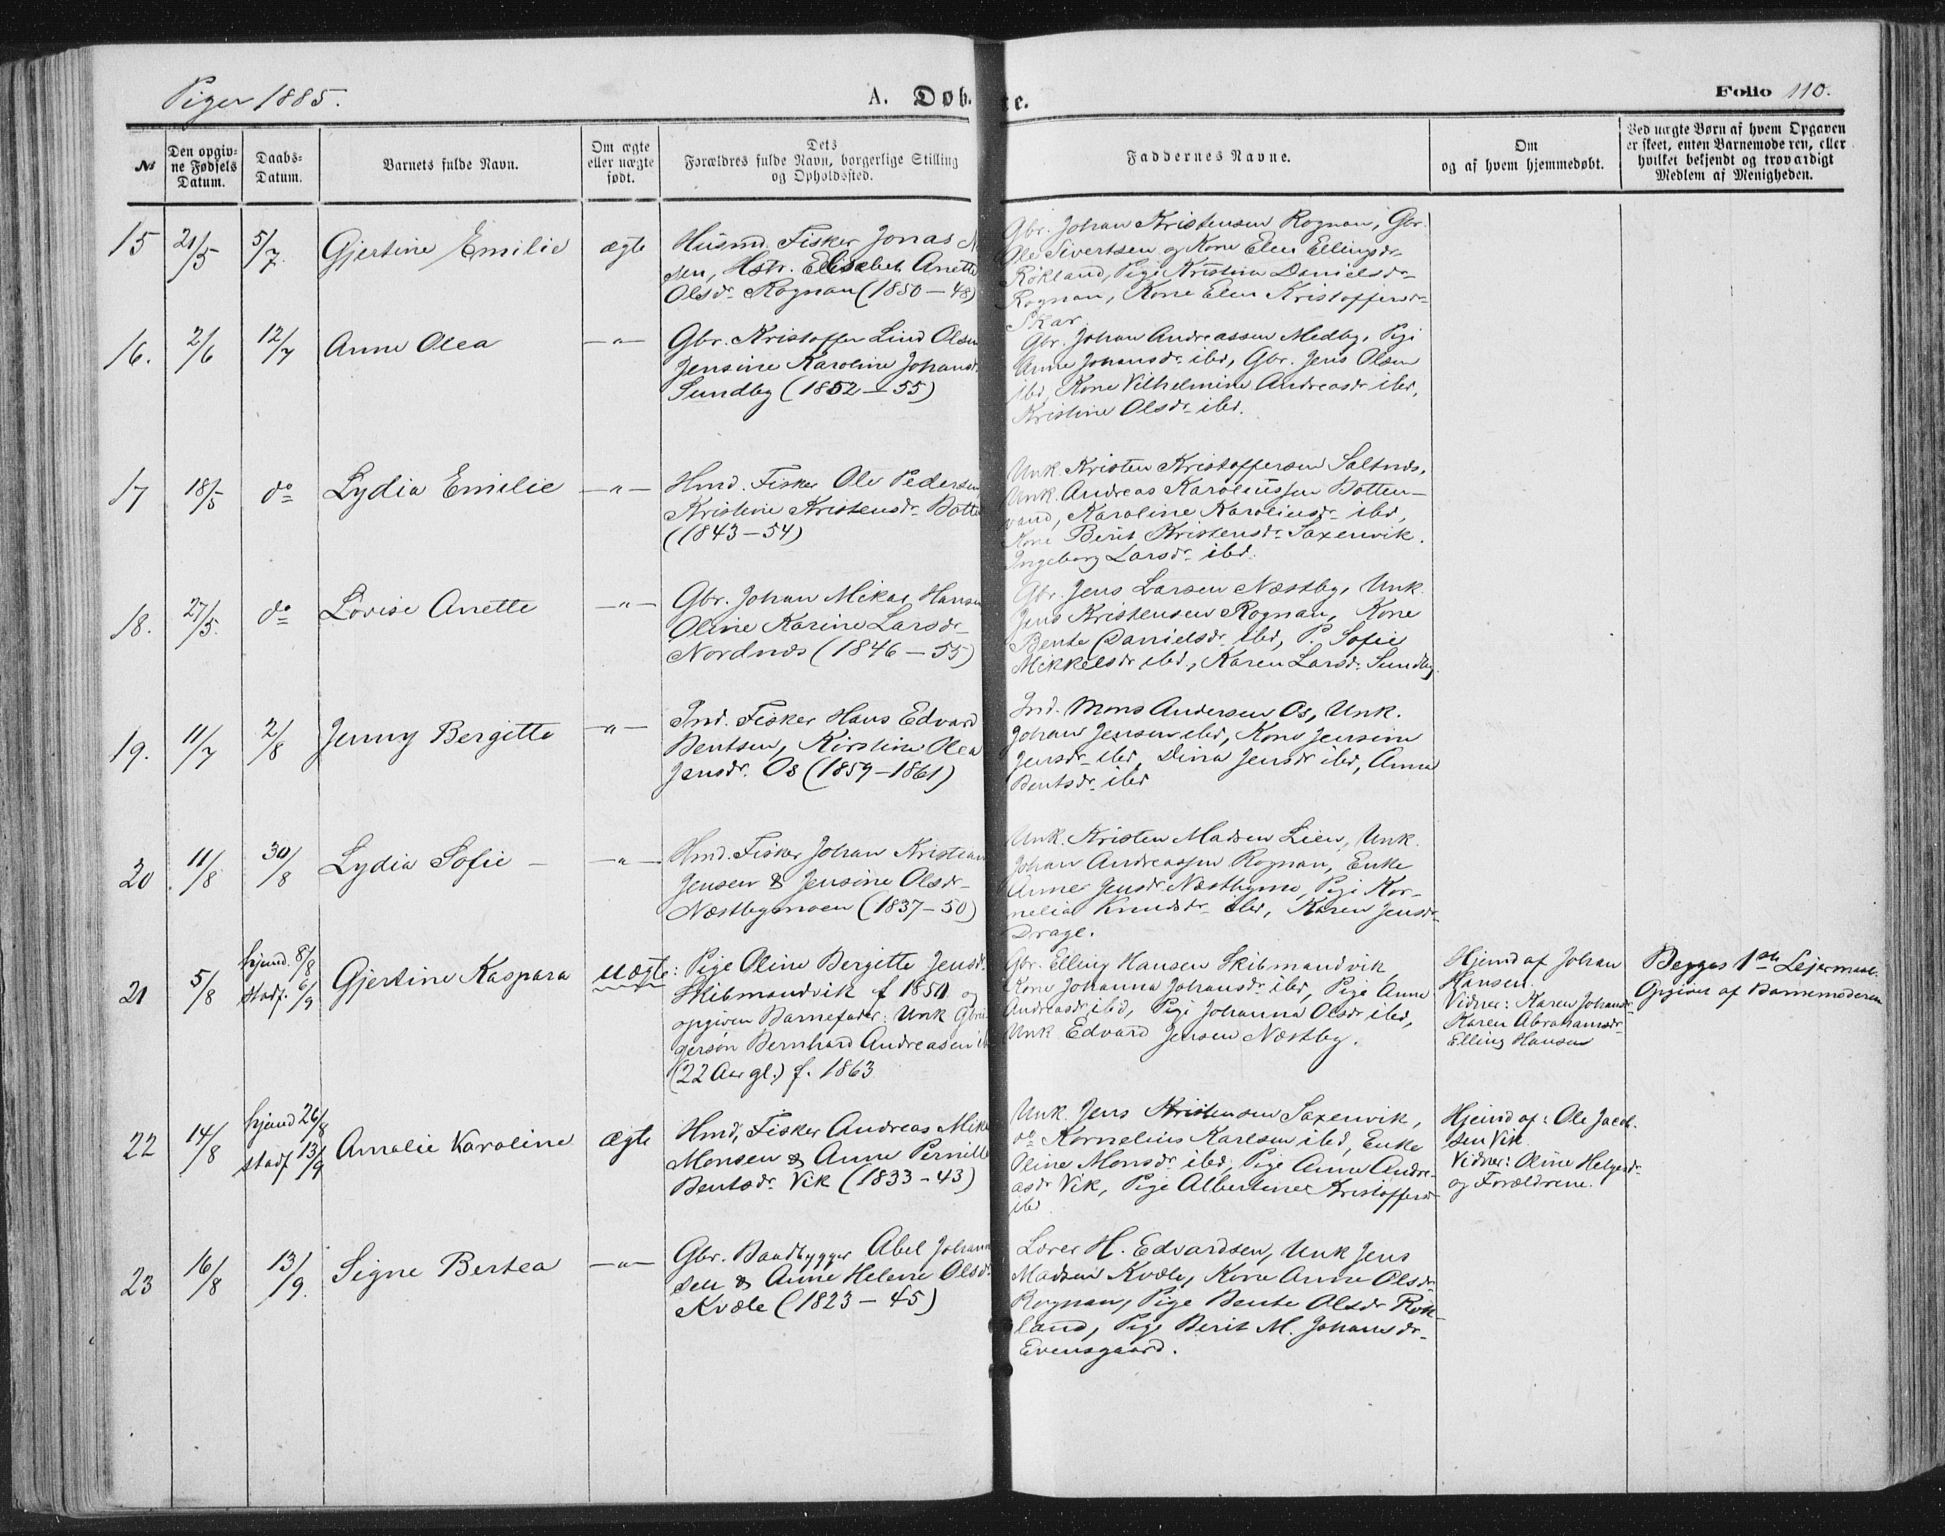 Piger 1885.
A. Døb te.
Folio 110.
No
Den opgiv-
ne Fødsels
Datum.
Daabs-
Datum.
Barnets fulde Navn.
Om ægte
eller uægte
født.
Dets
Forældres fulde Navn, borgerlige Stilling
og Opholdssted.
Faddernes Navne.
Om
og af hvem hjemmedøbt.
Ved uægte Børn af hvem Opgaven
er skeet, enten Barnemoderen, eller
hvilket bekjendt og troværdigt
Medlem af Menigheden.
15 21/5 5/7 Gjertine Emilie ægte
Husmd. Fisker Jonas
sen, Hstr. Elisabet Anette
Olsdr Rognan (1850-48)
Gbr. Johan Kristensen Rognan, Gbr.
Ole Sivertsen og Kone Elen Ellingsdr
Rökland, Pige Kristina Danielsdr
Rognan, Kone Elen Kristoffersdr
Skar.
16. 2/6 12/7 Anne Olea —"—
Gbr. Kristoffer Lind Olsen
Jensine Karoline Johansd.
Sundby (1852-55)
Gbr. Johan Andreassen Medby, Pige
Anne Johansdr ibd, Gbr. Jens Olsen
ibd, Kone Vilhelmine Andreasdr ibd,
Kristine Olsdr ibd.
17 18/5 do Lydia Emilie —"—
Hmd. Fisker Ole Pedersen
Kristine Kristensdr Botte
(1843-54)
Unk. Kristen Kristoffersen Saltnes,
Unk. Andreas Karoliussen Botten-
vand, Karoline Karoliusdr ibd,
Kone Berit Kristensdr Saxenvik.
Ingeborg Larsdr ibd.
18. 27/5. do Lovise Anette —"—
Gbr. Johan Mikal Hansen
Oline Karine Larsdr
Nordnes (1846-55)
Gbr. Jens Larsen Næstby, Unk.
Jens Kristensen Rognan, Kone
Bente Danielsdr ibd, P. Sofie
Mikkelsdr ibd, Karen Larsdr Sundby
19. 11/7 2/8 Jenny Bergitte —"—
Ind. Fisker Hans Edvard
Bentsen, Kirstine Olea
Jensdr. Os (1859-1861)
Ind. Mons Andersen Os, Unk.
Johan Jensen ibd, Kone Jensine
Jensdr ibd, Dina Jensdr ibd, Anna
Bentsdr ibd
20 11/8 30/8 Lydia Sofie — —"—
Hmd. Fisker Johan Kristian
Jensen & Jensine Olsdr
Næstbymoen (1837-50)
Unk. Kristen Madsen Lien, Unk.
Johan Andreassen Rognan, Enke
Anne Jensdr Næstbymo, Pige Kor-
nelia Knudsdr ibd, Karen Jensdr
Drage.
21 5/8 hjemd. 8/8
stadf. 6/9 Gjertine Kaspara uægte:
Pige Oline Bergitte Jensd.
Skibmandvik f 1851 og
opgiven Barnefader: Unk Gbru-
gersøn Bernhard Andreasen ib
(22 Aar gl.) f. 1863
Gbr. Elling Hansen Skibmandvik,
Kone Johanna Johansdr ibd, Pige Anne
Andreasdr ibd, Pige Johanna Olsdr ibd,
Unk Edvard Jensen Næstby.
Hjemd af Johan
Hansen.
Vidner: Karen Johansdr
Karen Abrahamsdr
Elling Hansen
Begges 1ste Lejermaal.
Opgivet af Barnemoderen
22 14/8 hjemd 26/8
stadf 13/9 Amalie Karoline ægte
Hmd, Fisker Andreas Mik
Monsen & Anne Pernille
Bentsdr Vik (1833-43)
Unk. Jens Kristensen Saxenvik,
do Kornelius Karlsen ibd, Enke
Oline Monsdr ibd, Pige Anne Andre-
asdr Vik, Pige Albertine Kristoffersd
ibd
Hjemd af: Ole Jacob-
sen Vik
Vidner: Oline Helgesdr
og Forældrene.
23 16/8 13/9. Signe Bertea —"—
Gbr. Baadbygger Abel Johann
sen & Anne Helene Olsd.
Kvæle (1823-45)
Lærer H. Edvardsen, Unk Jens
Madsen Kvæle, Kone Anne Olsdr
Rognan, Pige Bente Olsdr Rök-
land, Pige Berit M. Johansdr
Evensgaard.